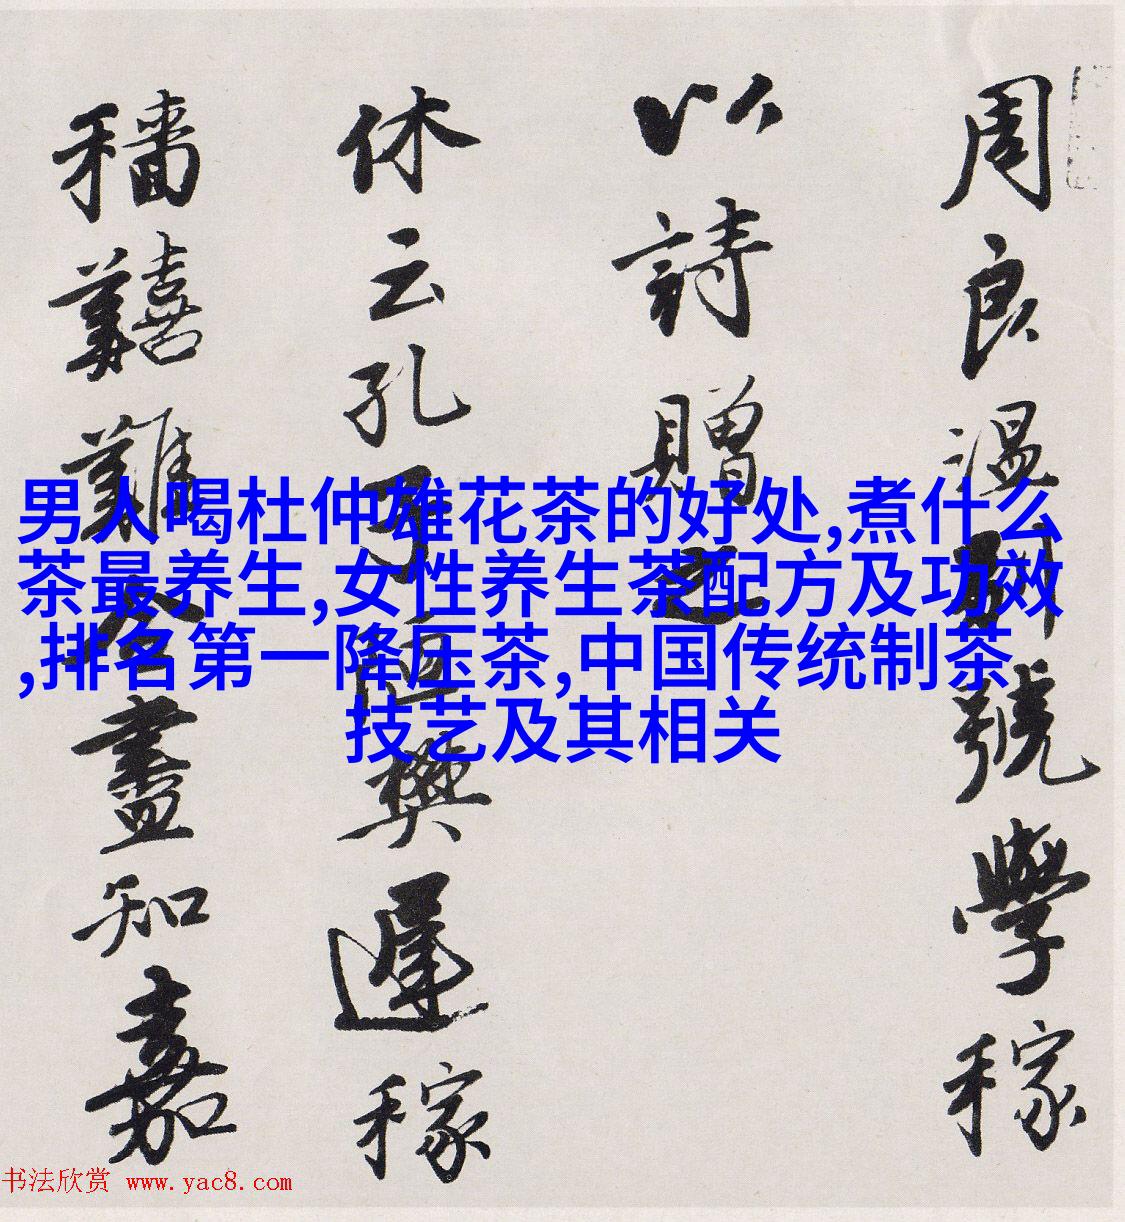 周良溫別號學稼
以詩贈之
休云孔子拒樊遲稼
穡囏難盡知嘉
男人喝杜仲雄花茶的好处,煮什么
茶最养生,女性养生茶配方及功效
,排名第一降压茶,中国传统制茶
技艺及其相关
书法欣赏 www.yac8.com